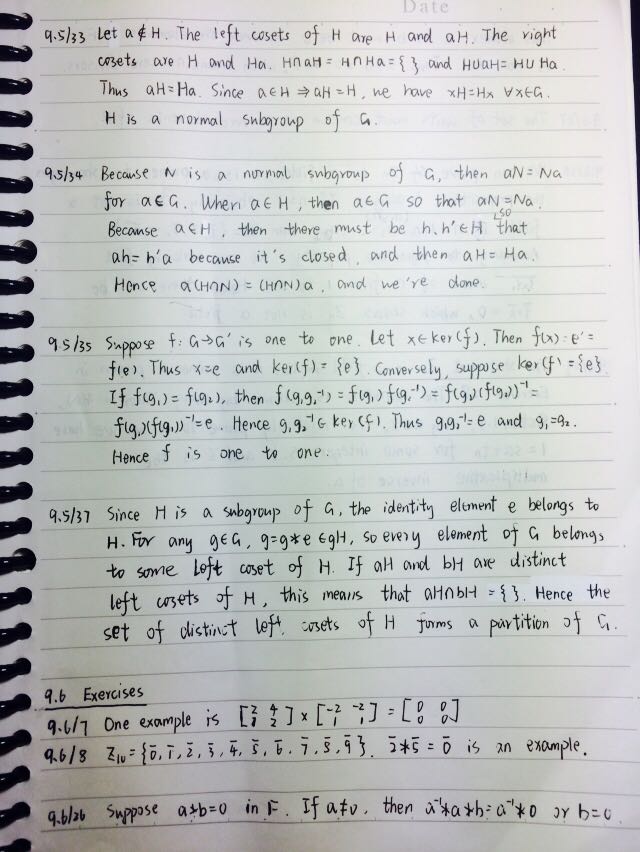 Date
9.5/33 Let a ∉ H. The left cosets of H are H and aH. The right
cosets are H and Ha. H∩aH = H∩Ha = { } and H∪aH = H∪Ha.
Thus aH=Ha. Since a∈H ⇒ aH=H, we have xH=Hx ∀x∈G.
H is a normal subgroup of G.
9.5/34 Because N is a normal subgroup of G, then aN = Na
for a∈G. When a∈H, then a∈G so that aN=Na.
Because a∈H, then there must be h, h'∈H so that
ah = h'a because it's closed, and then aH = Ha.
Hence a(H∩N) = (H∩N)a, and we're done.
9.5/35 Suppose f: G→G' is one to one. Let x∈ker(f). Then f(x)=e'=
f(e). Thus x=e and ker(f) = {e}. Conversely, suppose ker(f) = {e}
If f(g₁) = f(g₂), then f(g₁g₂⁻¹) = f(g₁)f(g₂⁻¹) = f(g₁)(f(g₂))⁻¹=
f(g₁)(f(g₁))⁻¹=e. Hence g₁g₂⁻¹∈ker(f). Thus g₁g₂⁻¹=e and g₁=g₂.
Hence f is one to one.
9.5/37 Since H is a subgroup of G, the identity element e belongs to
H. For any g∈G, g=g*e∈gH, so every element of G belongs
to some left coset of H. If aH and bH are distinct
left cosets of H, this means that aH∩bH = { }. Hence the
set of distinct left cosets of H forms a partition of G.
9.6 Exercises
9.6/7 One example is × =
9.6/8 Z₁₀={0̄, 1̄, 2̄, 3̄, 4̄, 5̄, 6̄, 7̄, 8̄, 9̄}. 2̄*5̄ = 0̄ is an example.
9.6/26 Suppose a*b=0 in F. If a≠0, then a⁻¹*a*b=a⁻¹*0 or b=0